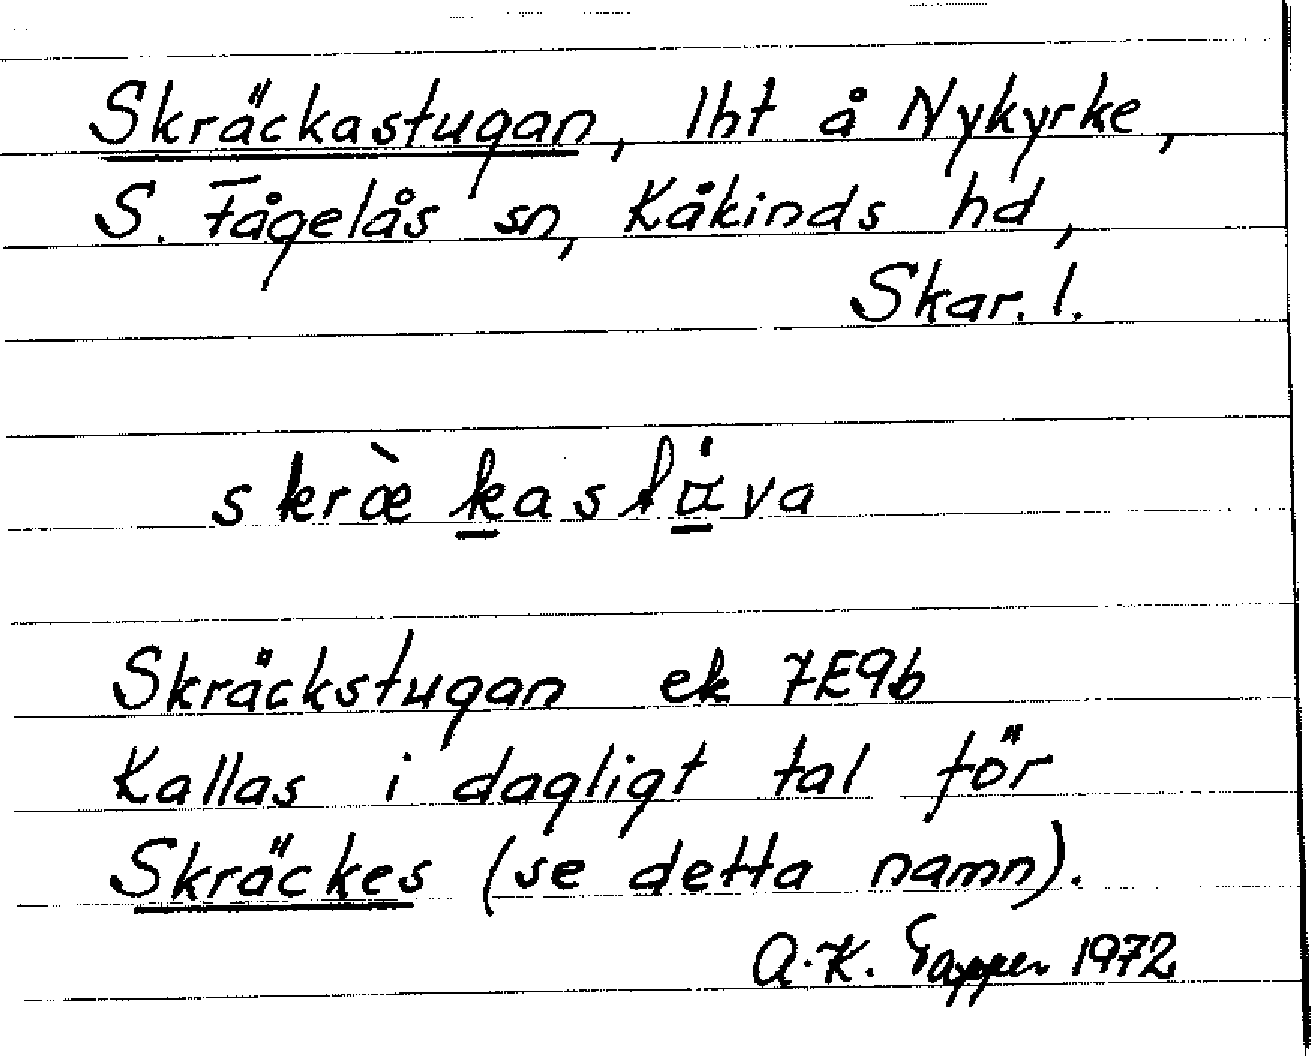 Skräckastugan, lht å Nykyrke,
S. Fågelås sn, Kåkinds hd,
Skar. l.
Skräckstugan ek 7E9b
Kallas i dagligt tal för
Skräckes (se detta namn).
A.-K. Tapper 1972